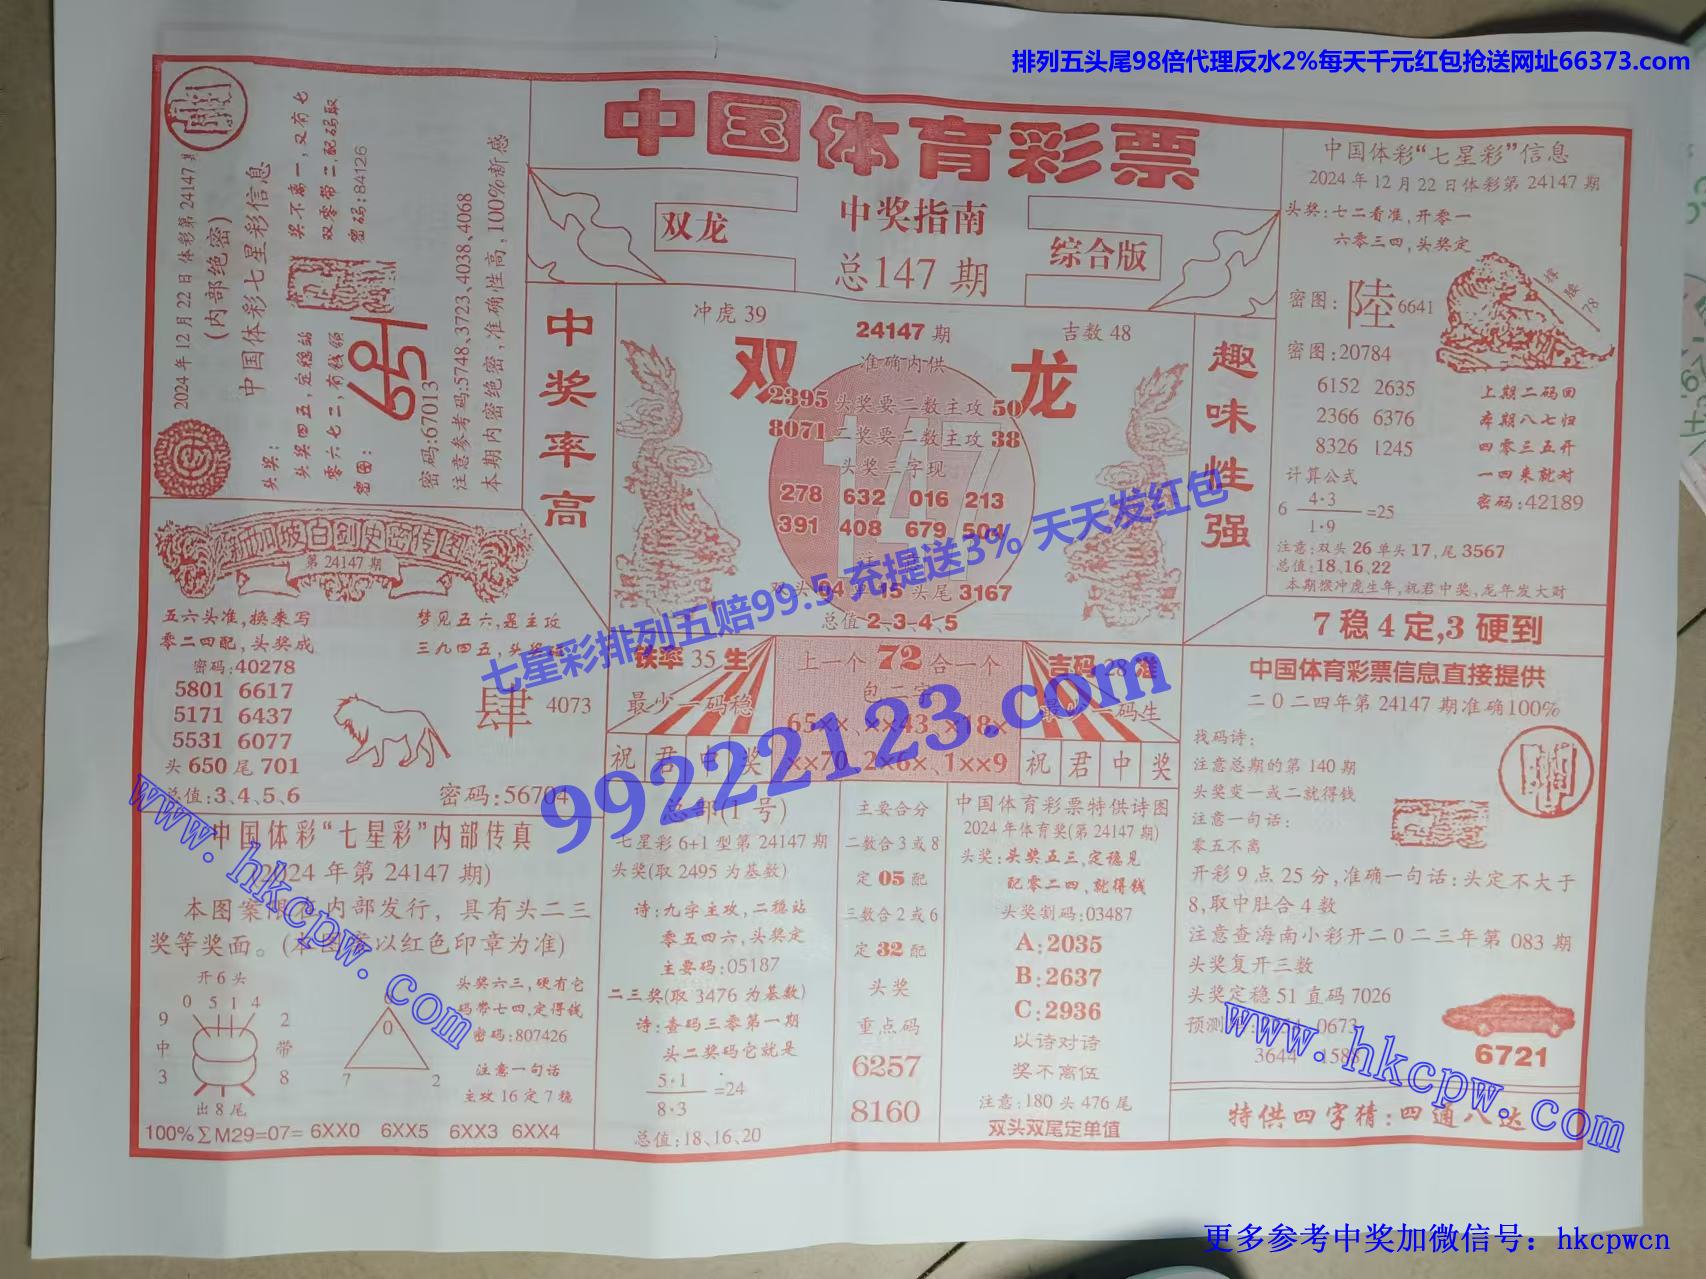 排列五头尾98倍代理反水2%每天千元红包抢送网址66373.com
中国体育彩票
双龙
中奖指南
综合版
总147期
2024年12月22日体彩第24147期
(内部绝密)
中国体彩七星彩信息
头奖:
头奖四五,定稳站
零六七二,有钱领
奖不离一,又有七
双零带二,配码取
密码:84126
密图:
密码:67013
注意参考码:5748、3723、4038、4068
本期内密绝密,准确性高,100%新感
中奖率高
冲虎39
24147期
吉数48
准确内供
双龙
2395 头奖要二数主攻 50
8071 二奖要二数主攻 38
头奖三字现
278 632 016 213
391 408 679 504
双头04单15头尾3167
总值2、3、4、5
趣味性强
中国体彩“七星彩”信息
2024年12月22日体彩第24147期
头奖:七二看准,开零一
六零三四,头奖定
密图:陸6641
密图:20784
6152 2635
2366 6376
8326 1245
上期二码回
本期八七归
四零三五开
一四来就对
密码:42189
计算公式
6 4·3/1·9 =25
注意:双头26单头17,尾3567
总值:18、16、22
本期猴冲虎生年,祝君中奖,龙年发大财
7稳4定,3硬到
新加坡白剑史密传图
第24147期
五六头准,换来写
零二四配,头奖成
密码:40278
5801 6617
5171 6437
5531 6077
头650尾701
总值:3、4、5、6
梦见五六,是主攻
肆 4073
密码:56704
铁率35生
最少一码稳
上一个72合一个
包二字
65××、××43、×18×
××70、2×6×、1××9
吉码28准
最少一码生
祝君中奖
祝君中奖
中国体育彩票信息直接提供
二0二四年第24147期准确100%
找码诗:
注意总期的第140期
头奖变一或二就得钱
注意一句话:
零五不离
开彩9点25分,准确一句话:头定不大于
8,取中肚合4数
注意查海南小彩开二0二三年第083期
头奖复开三数
头奖定稳51直码7026
0673
3644
6721
特供四字猜:四通八达
中国体彩“七星彩”内部传真
(2024年第24147期)
本图案限在内部发行，具有头二三
奖等奖面。(本图章以红色印章为准)
开6头
0 5 1 4
9 中 3
2 带 8
出8尾
0
7 2
头奖六三,硬有它
码带七四,定得钱
密码:807426
注意一句话
主攻16定7稳
100%∑M29=07= 6XX0 6XX5 6XX3 6XX4
总部(1号)
七星彩6+1型第24147期
头奖(取2495为基数)
诗:九字主攻,二稳站
零五四六,头奖定
主要码:05187
二三奖(取3476为基数)
诗:查码三零第一期
头二奖码它就是
5·1/8·3 =24
总值:18、16、20
主要合分
二数合3或8
定05配
三数合2或6
定32配
头奖
重点码
6257
8160
中国体育彩票特供诗图
2024年体育奖(第24147期)
头奖:头奖五三,定稳见
配零二四,就得钱
头奖割码:03487
A:2035
B:2637
C:2936
以诗对诗
奖不离伍
注意:180头476尾
双头双尾定单值
七星彩排列五赔99.5 充提送3% 天天发红包
99222123.com
www.hkcpw.com
www.hkcpw.com
更多参考中奖加微信号：hkcpwcn